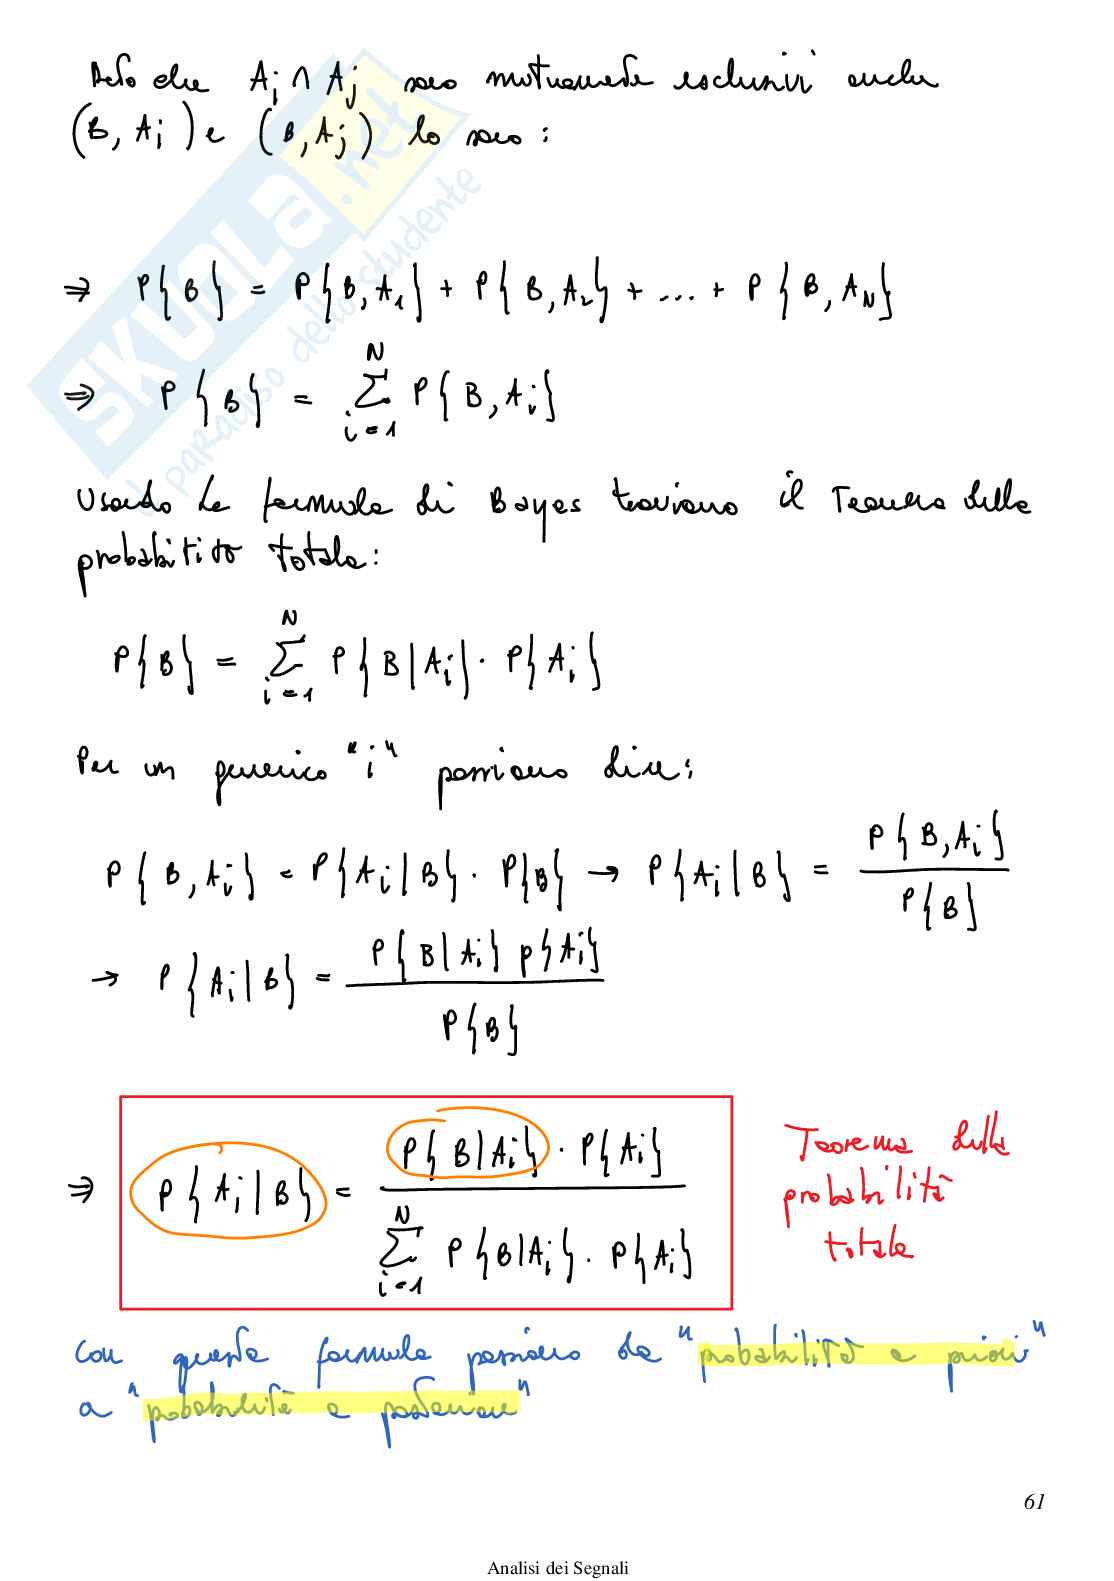 Dato che Ai ∩ Aj sono mutuamente esclusivi anche
(B, Ai) e (B, Aj) lo sono:
⇒ P{B} = P{B, A1} + P{B, A2} + ... + P{B, AN}
⇒ P{B} = ∑_{i=1}^{N} P{B, Ai}
Usando la formula di Bayes troviamo il Teorema della
probabilità totale:
P{B} = ∑_{i=1}^{N} P{B|Ai} · P{Ai}
Per un generico "i" possiamo dire:
P{B, Ai} = P{Ai|B} · P{B} → P{Ai|B} = P{B, Ai} / P{B}
→ P{Ai|B} = P{B|Ai} P{Ai} / P{B}
⇒ P{Ai|B} = P{B|Ai} · P{Ai} / ∑_{i=1}^{N} P{B|Ai} · P{Ai}
Teorema della
probabilità
totale
Con questa formula passiamo da "probabilità a priori"
a "probabilità a posteriori"
61
Analisi dei Segnali
SKUOLA.net
il paradiso dello studente